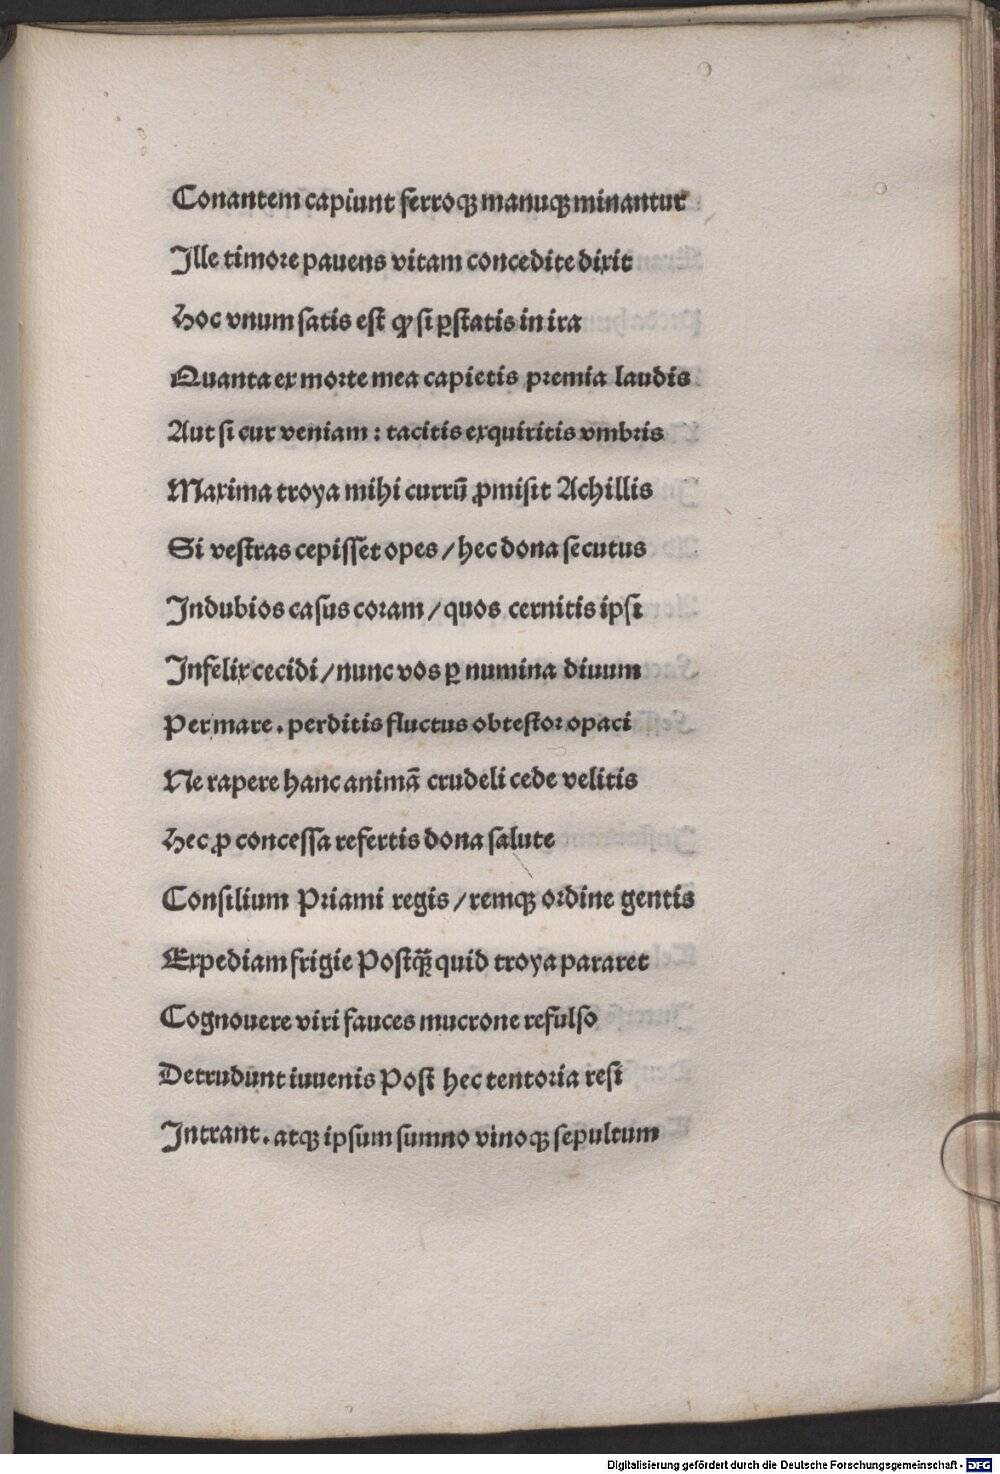 Conantem capiunt ferroqꝫ manuqꝫ minantur
Jlle timore pauens vitam concedite dixit
Hoc vnum satis est ꝙ si ꝑstatis in ira
Quanta ex morte mea capietis premia laudis
Aut si cur veniam : tacitis exquiritis vmbris
Maxima troya mihi currū ꝓmisit Achillis
Si vestras cepisset opes / hec dona secutus
Jndubios casus coram / quos cernitis ipsi
Jnfelix cecidi / nunc vos ꝑ numina diuum
Per mare . perditis fluctus obtestor opaci
Ne rapere hanc animā crudeli cede velitis
Hec ꝓ concessa refertis dona salute
Consilium Priami regis / remqꝫ ordine gentis
Expediam frigie Postqꝫ̄ quid troya pararet
Cognouere viri fauces mucrone refulso
Detrudunt iuuenis Post hec tentoria resi
Jntrant . atqꝫ ipsum sumno vinoqꝫ sepultum
Digitalisierung gefördert durch die Deutsche Forschungsgemeinschaft - DFG